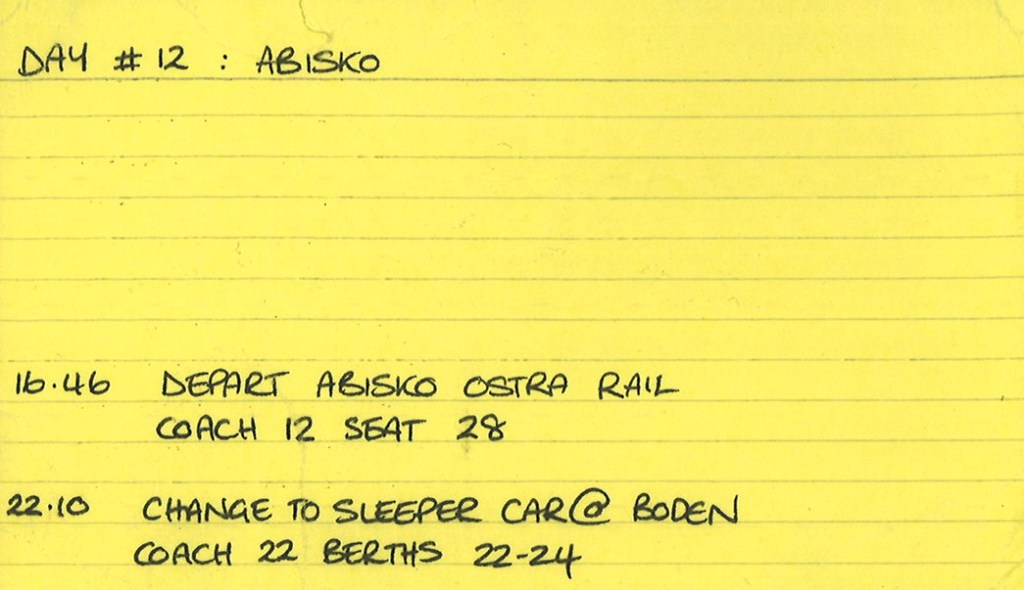 DAY # 12 : ABISKO
16.46 DEPART ABISKO OSTRA RAIL
COACH 12 SEAT 28
22.10 CHANGE TO SLEEPER CAR @ BODEN
COACH 22 BERTHS 22-24